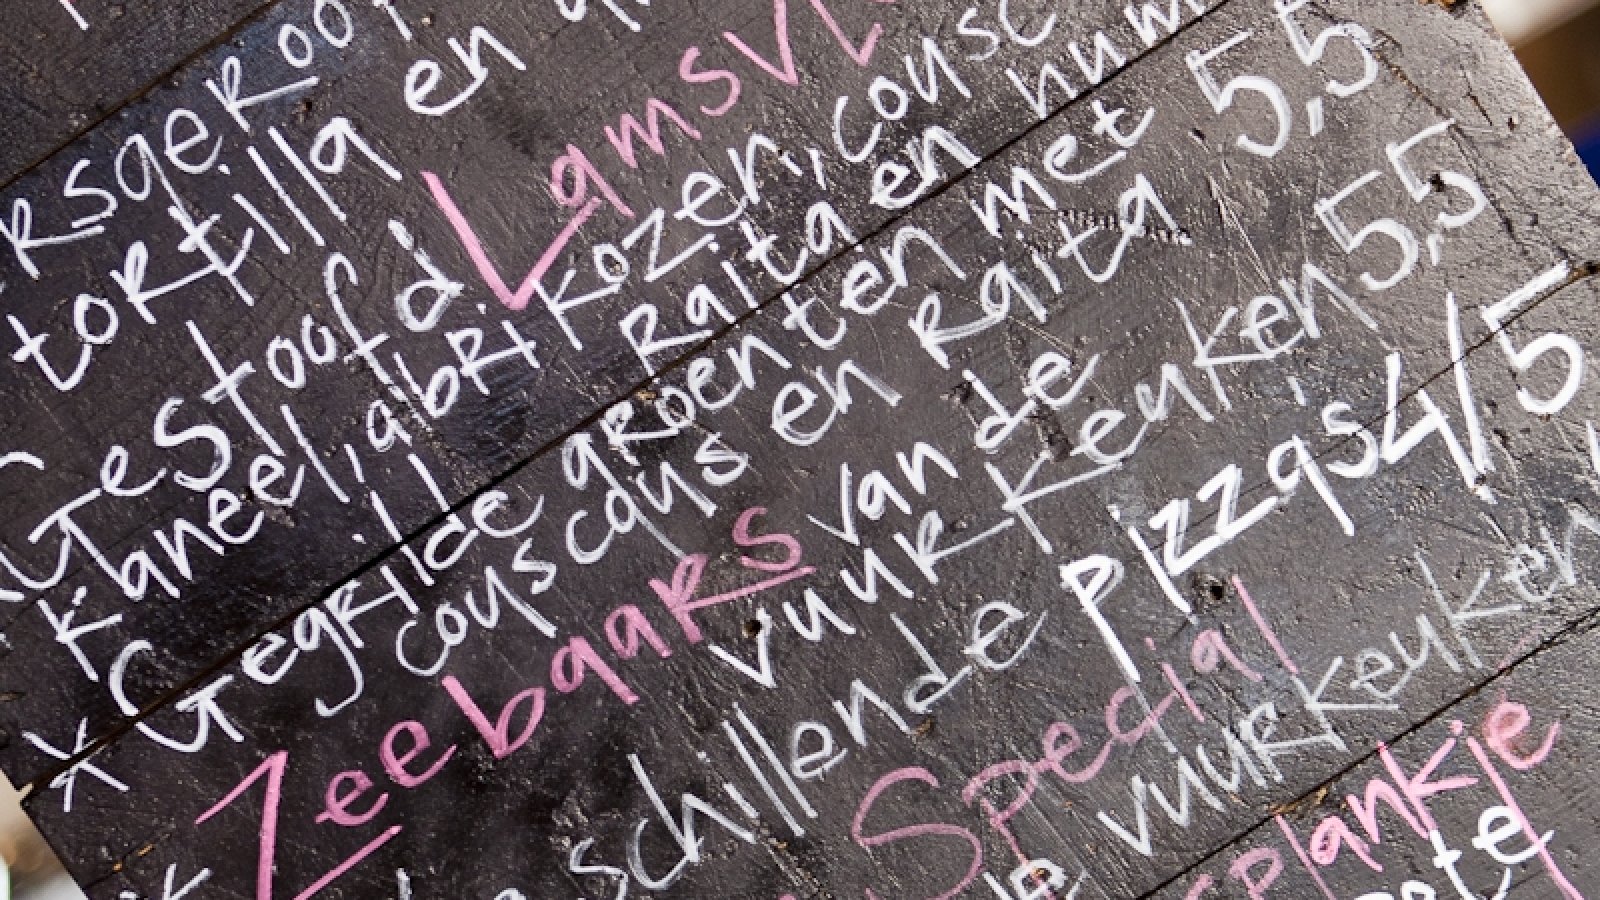 tortilla en
Gestoofd Lamsvl
kaneel, abrikozen, cousc
Raita en hum
* Gegrilde groenten met 5,5
couscous en Raita
Zeebaars van de
vuurkeuken 5,5
schillende pizzas 4/5
Special
vuurkeuken
plankje